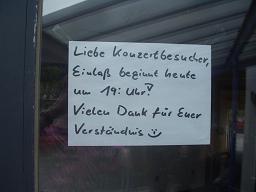 Liebe Konzertbesucher,
Einlaß beginnt heute
um 19: Uhr!
Vielen Dank für Euer
Verständnis